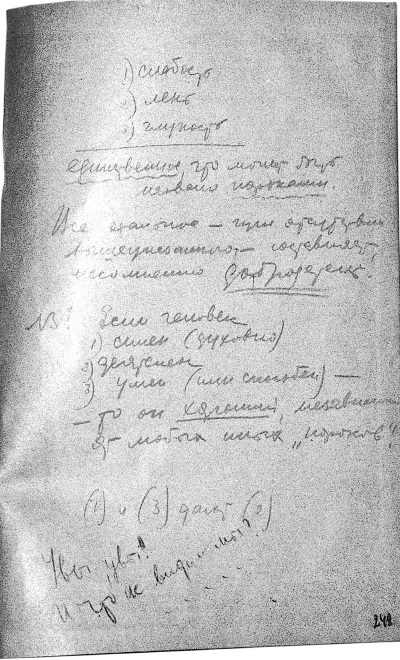 1) слабость
2) лень
3) глупость
единственное, что может быть
названо пороками.
Все остальное – при отсутствии
вышеуказанного – составляет,
несомненно добродетель.
NB! Если человек
1) силен (духовно)
2) деятелен
3) умен (или способен) –
– то он хороший, независимо
от любых иных „пороков"!
(1) и (3) дают (2)
Увы, увы!
И что ж видим мы?
......
248